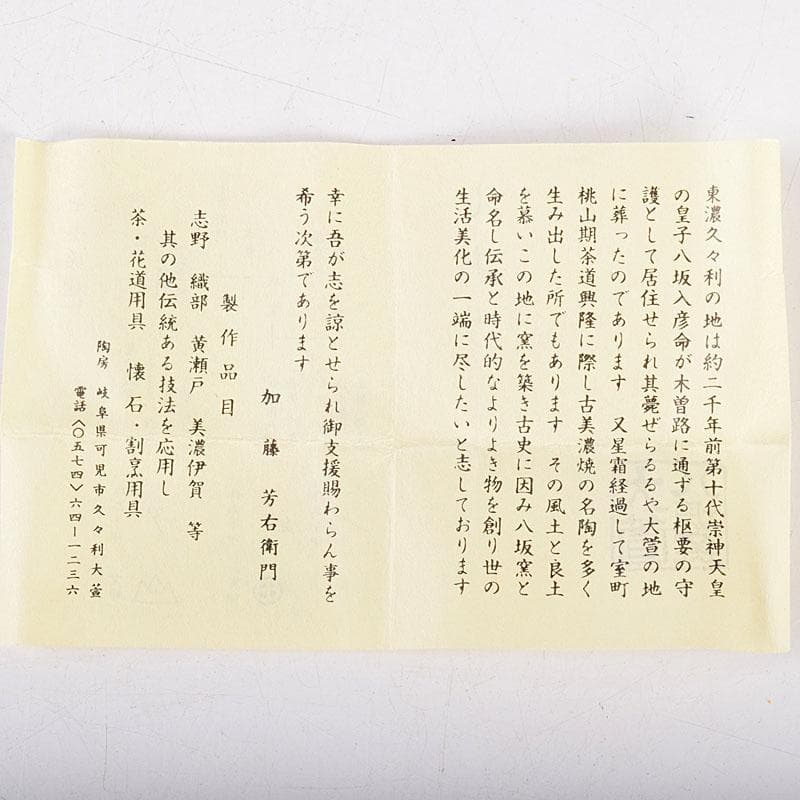 東濃久々利の地は約二千年前第十代崇神天皇
の皇子八坂入彦命が木曽路に通ずる枢要の守
護として居住せられ其薨ぜらるるや大萱の地
に葬ったのであります 又星霜経過して室町
桃山期茶道興隆に際し古美濃焼の名陶を多く
生み出した所でもあります その風土と良土
を慕いこの地に窯を築き古史に因み八坂窯と
命名し伝承と時代的なよりよき物を創り世の
生活美化の一端に尽したいと志しております
幸に吾が志を諒とせられ御支援賜わらん事を
希う次第であります
加藤 芳右衛門
製作品目
志野 織部 黄瀬戸 美濃伊賀 等
其の他伝統ある技法を応用し
茶・花道用具 懐石・割烹用具
陶房 岐阜県可児市久々利大萱
電話〈〇五七四〉六四－一二三六